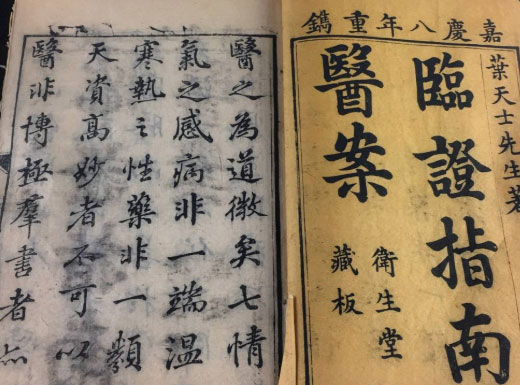 嘉慶八年重鐫
葉天士先生著
臨證指南
醫案
衛生堂
藏板
醫之為道微矣七情
氣之感病非一端温
寒熱之性藥非一類
天資高妙者不可以
醫非博極羣書者亦